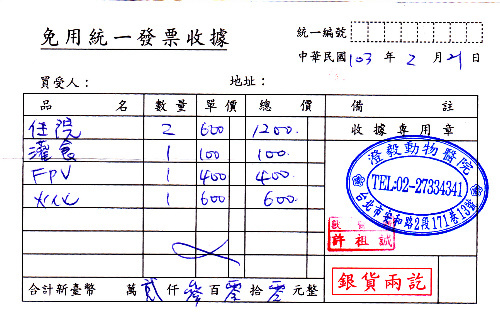 免用統一發票收據
統一編號
中華民國 103 年 2 月 21 日
買受人： 地址：
品 名 數量 單價 總 價 備 註
住院 2 600 1200.
灌食 1 100 100.
FPV 1 400 400.
1 600 600.
收據專用章
澄毅動物醫院
TEL:02-27334341
台北市安和路2段171巷13號
許祖誠
銀貨兩訖
合計新臺幣 萬 貳 仟 參 百 零 拾 零 元整